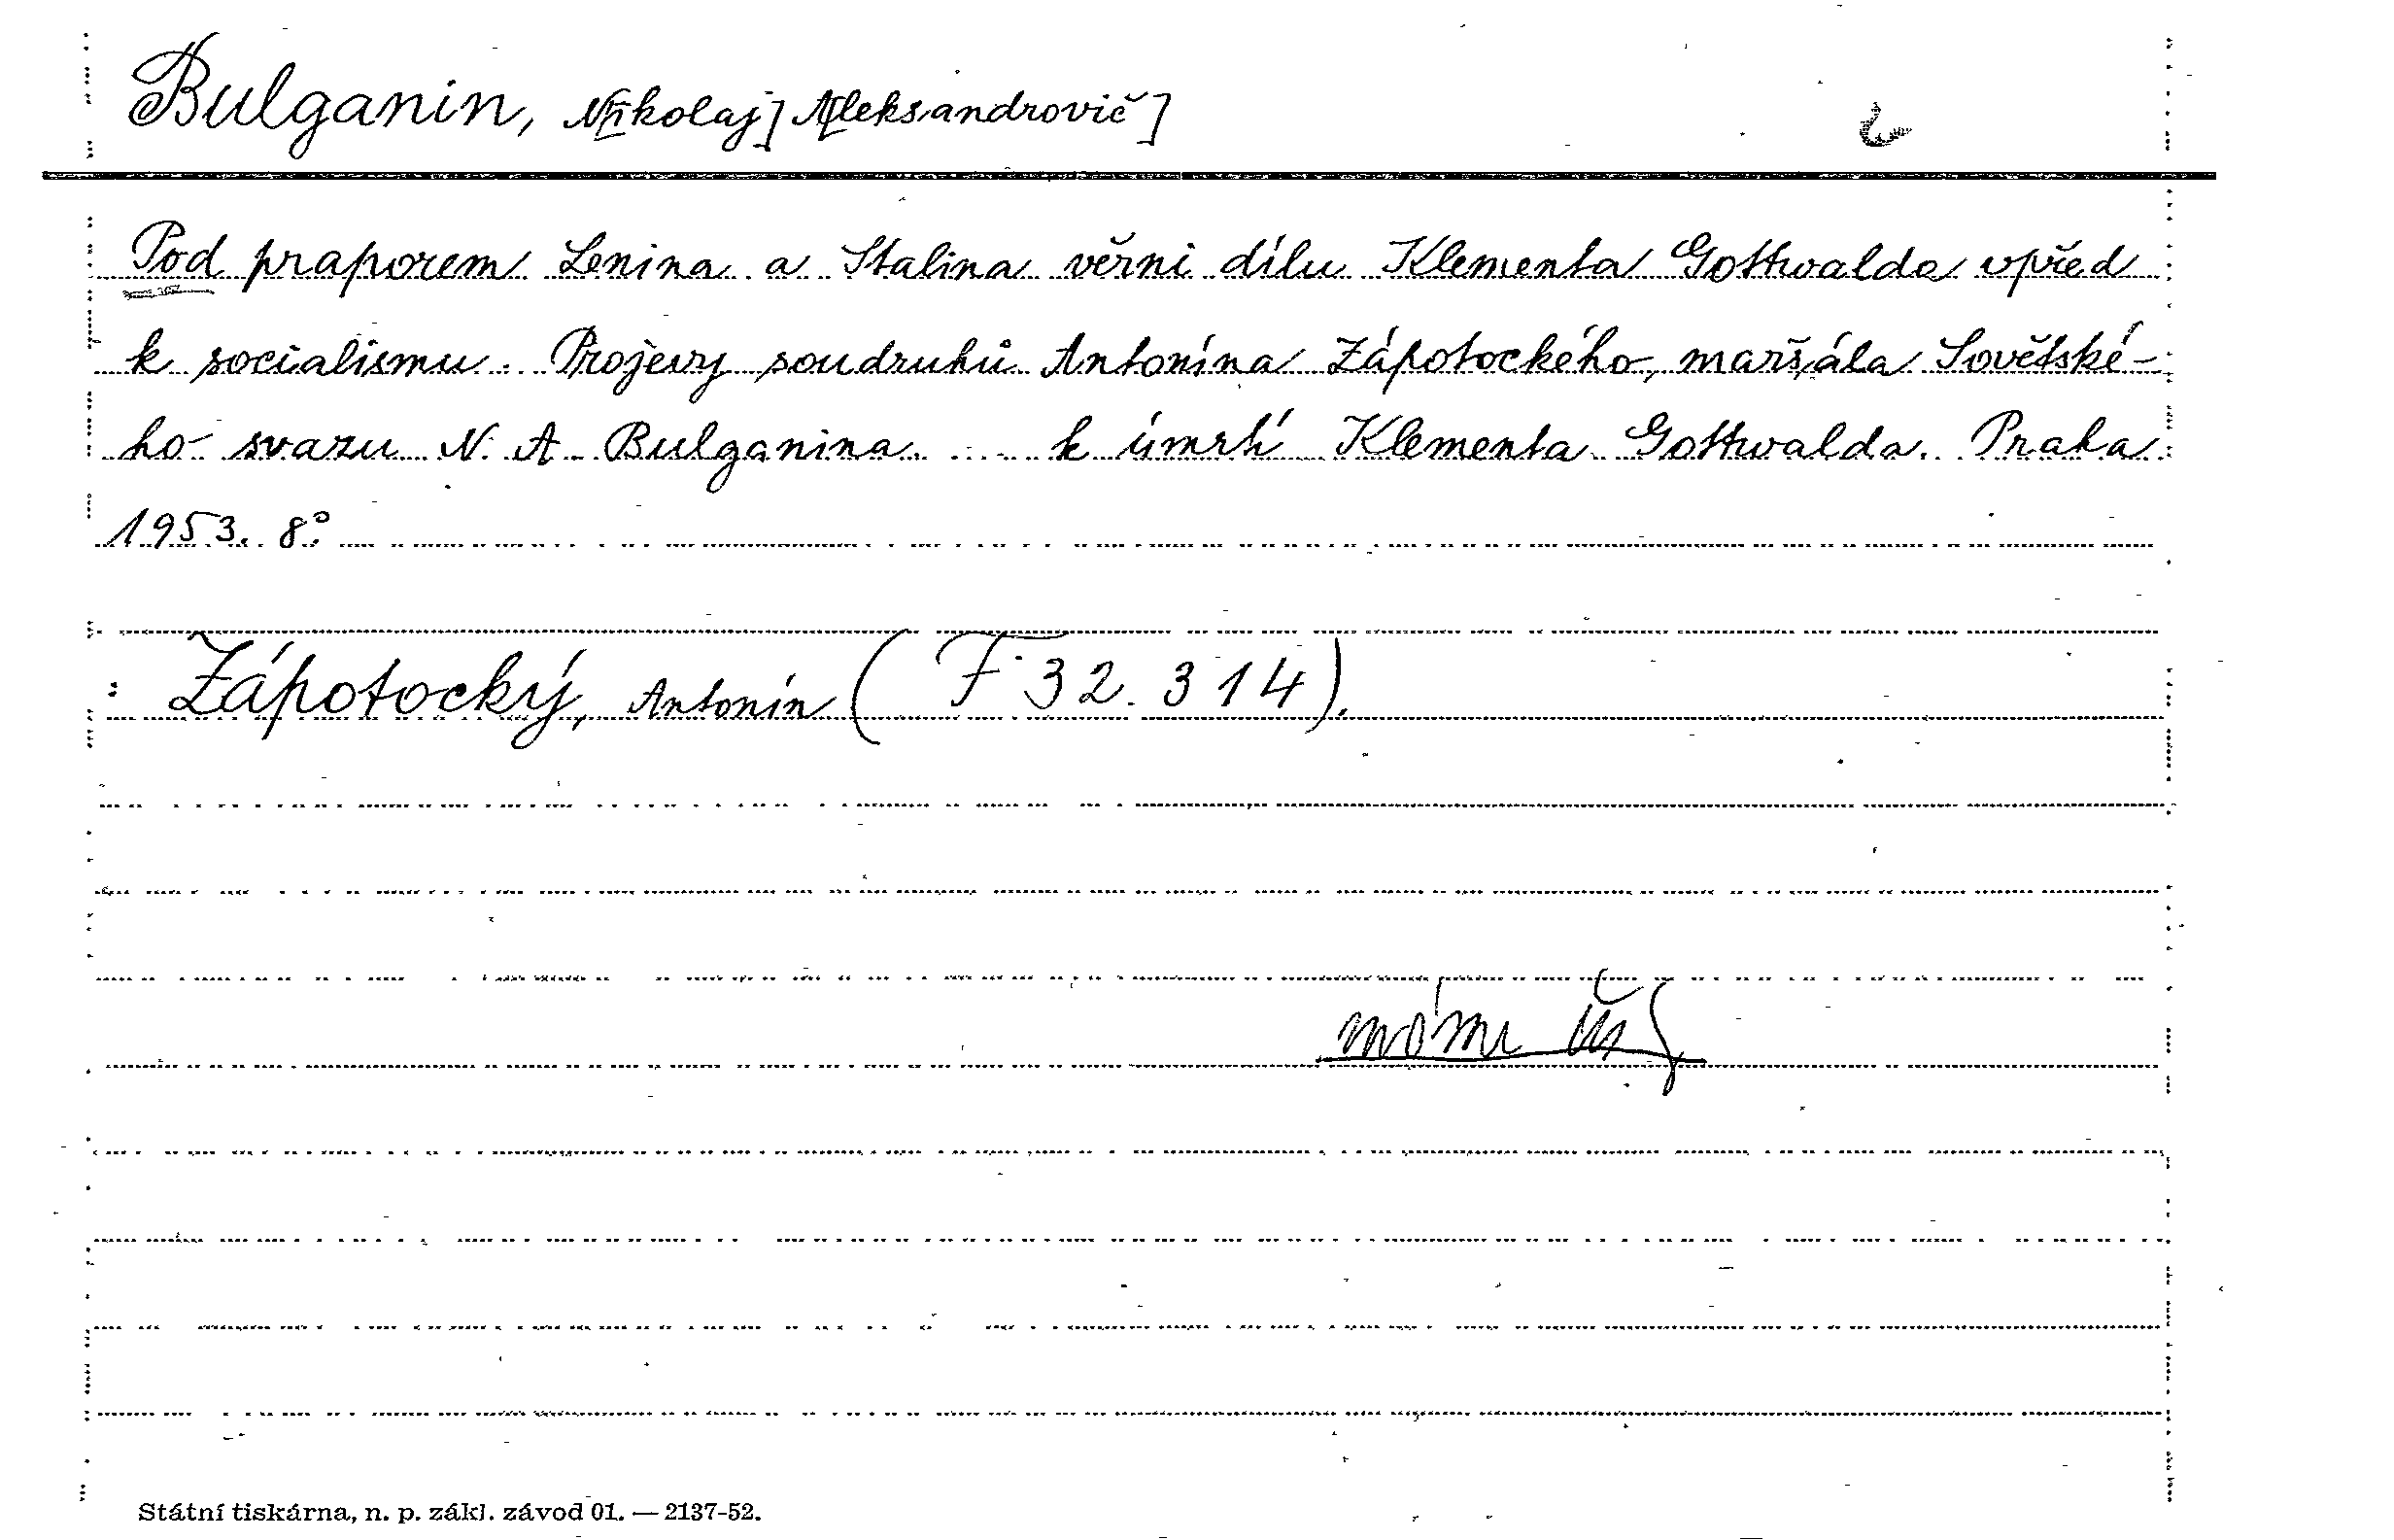 Bulganin, N[ikolaj] A[leksandrovič]
Pod praporem Lenina a Stalina věrni dílu Klementa Gottwalda vpřed
k socialismu. Projevy soudruhů Antonína Zápotockého, maršála Sovětské-
ho svazu N. A. Bulganina. ... k úmrtí Klementa Gottwalda. Praha
1953. 8°.
: Zápotocký, Antonín (F 32.314).
Státní tiskárna, n. p. zákl. závod 01. — 2137-52.